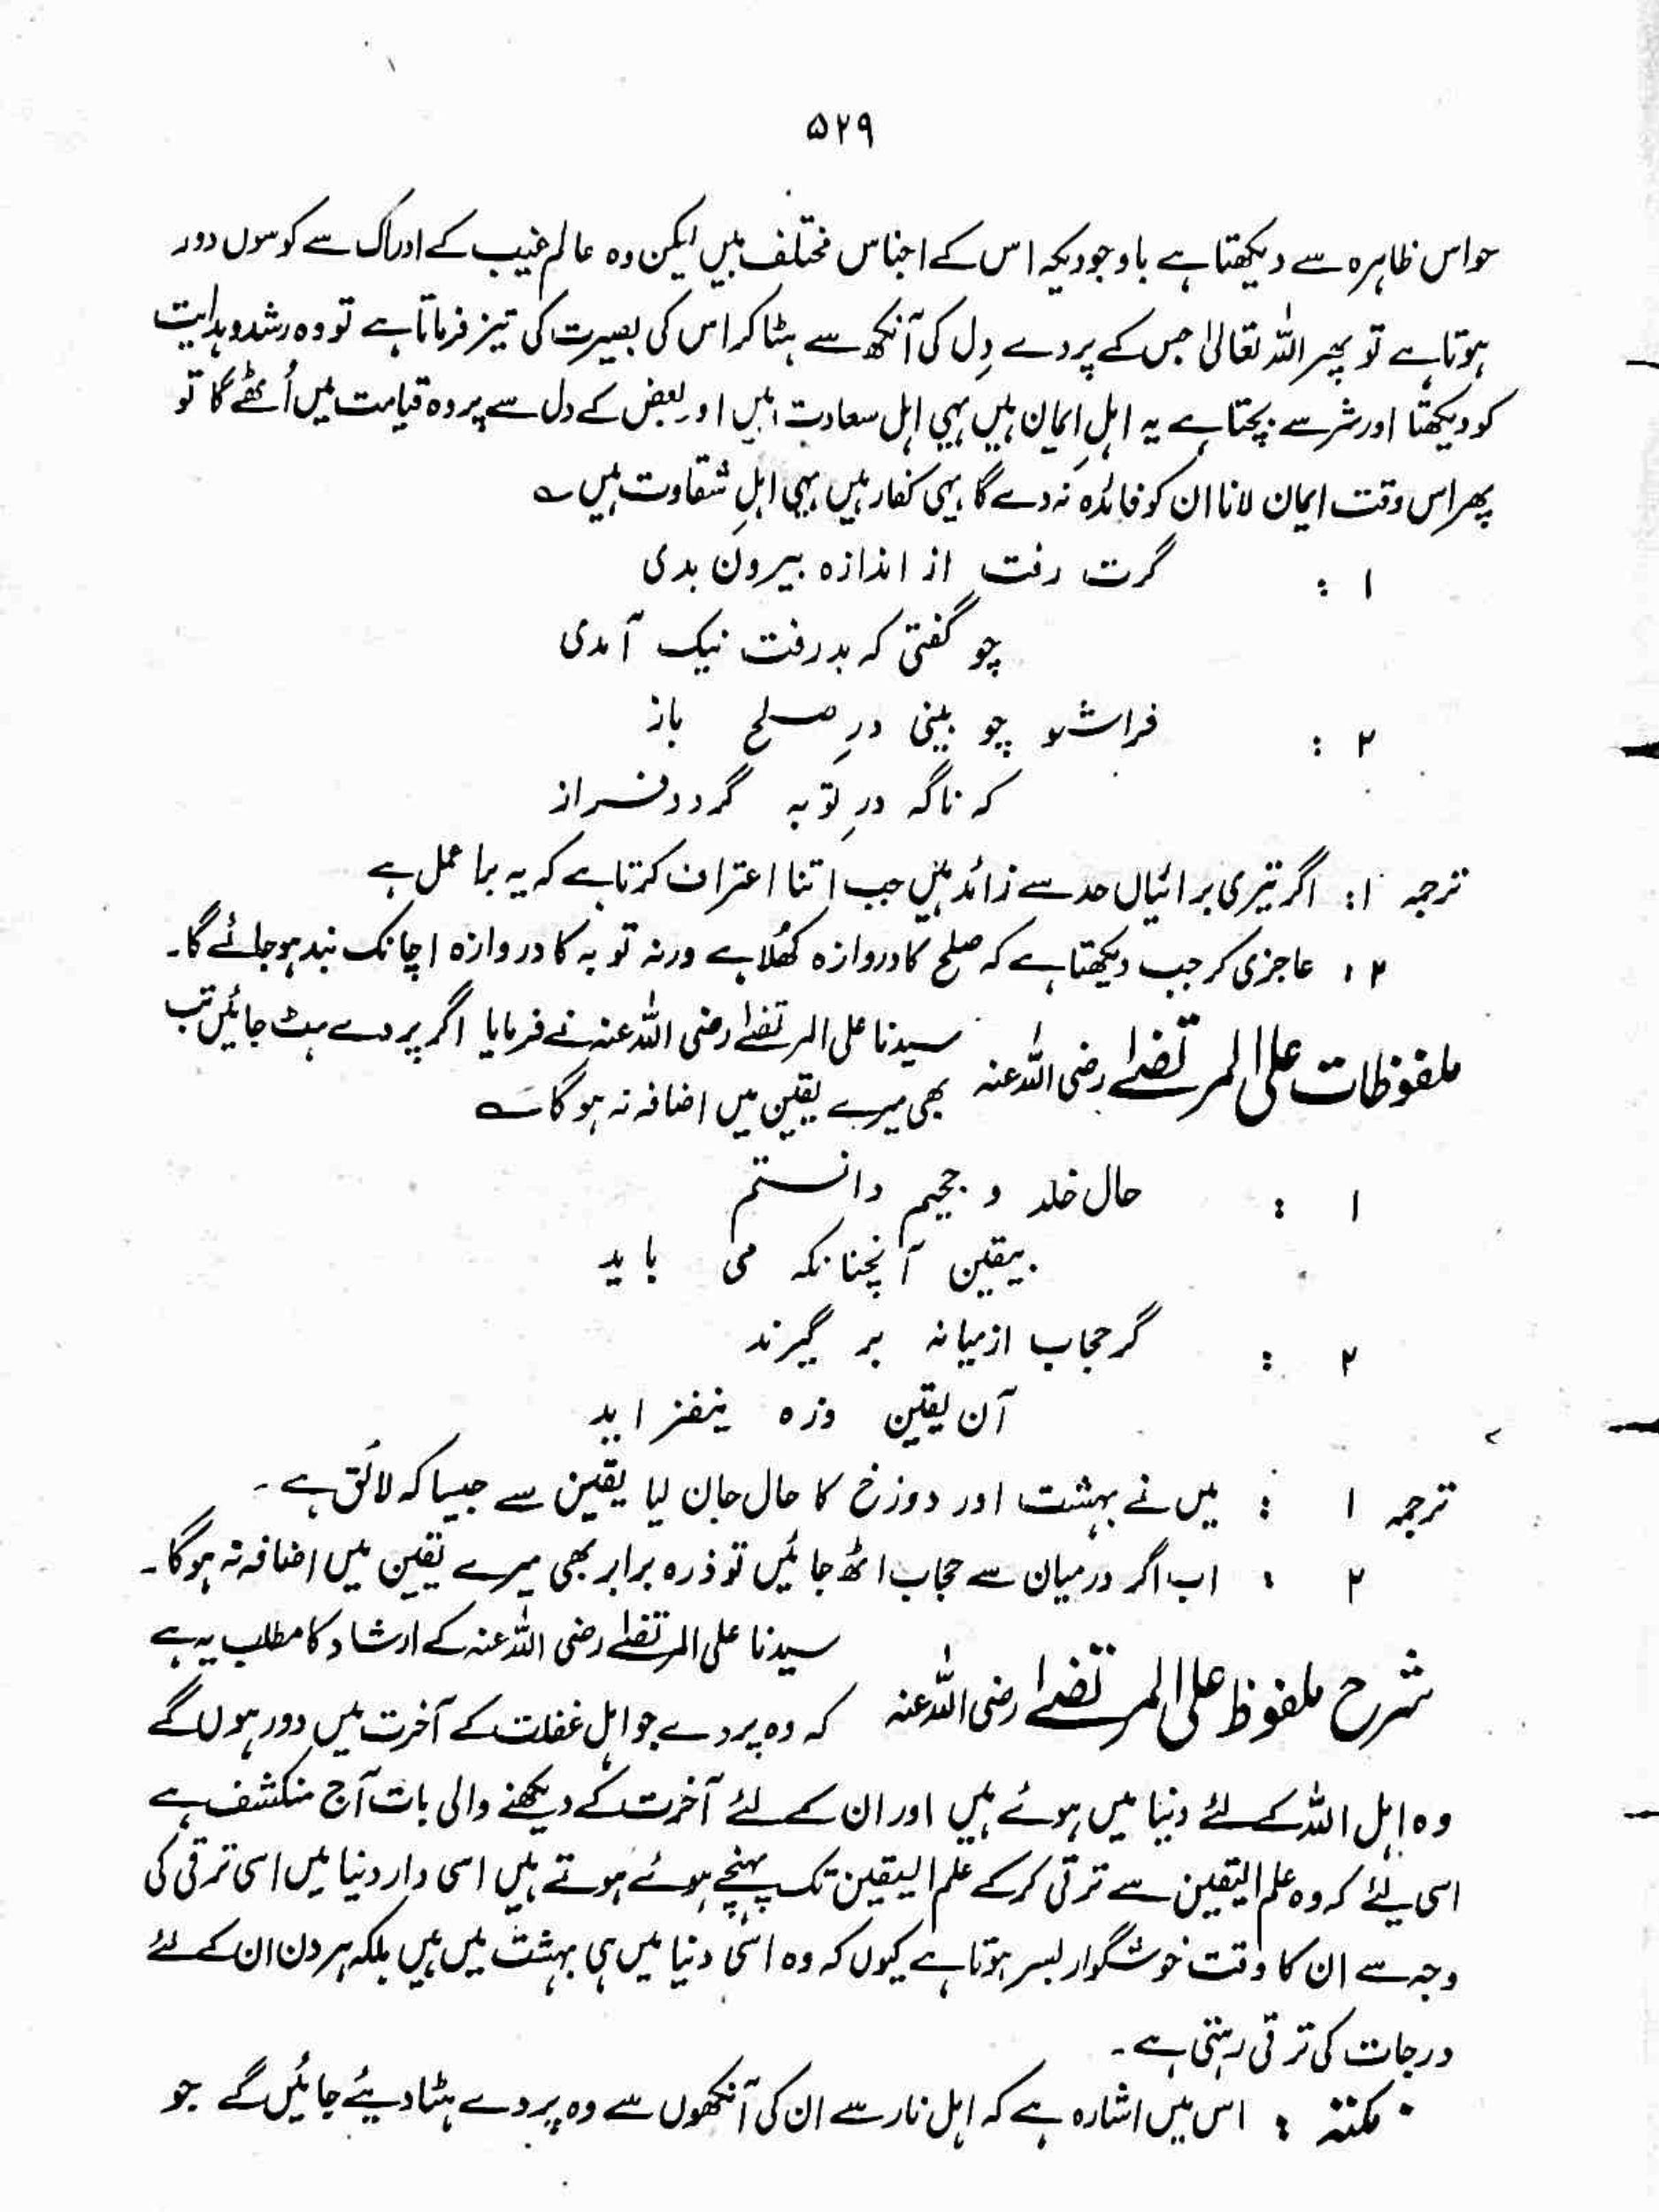 ۵۲۹
حواس ظاہرہ سے دیکھتا ہے باوجودیکہ اس کے اجناس مختلف ہیں لیکن وہ عالم غیب کے ادراک سے کوسوں دور
ہوتا ہے تو پھر اللہ تعالیٰ جس کے پردے دِل کی آنکھ سے ہٹا کر اس کی بصیرت کی تیز فرماتا ہے تو وہ رشد و ہدایت
کو دیکھتا اور شر سے بچتا ہے یہ اہلِ ایمان ہیں یہی اہل سعادت ہیں اور بعض کے دل سے پردہ قیامت میں اُٹھے گا تو
پھر اس وقت ایمان لانا ان کو فائدہ نہ دے گا یہی کفار ہیں یہی اہلِ شقاوت ہیں ؎
۱ : گرت رفت از اندازہ بیرون بدی
چو گفتی کہ بد رفت نیک آمدی
۲ : فراشو چو بینی درِ صلح باز
کہ ناگہ درِ توبہ گردد فراز
ترجمہ ۱: اگر تیری برائیاں حد سے زائد ہیں جب اتنا اعتراف کرتا ہے کہ یہ برا عمل ہے
۲ : عاجزی کر جب دیکھتا ہے کہ صلح کا دروازہ کُھلا ہے ورنہ توبہ کا دروازہ اچانک بند ہو جائے گا۔
ملفوظات علی المرتضےٰ رضی اللہ عنہ سیدنا علی المرتضےٰ رضی اللہ عنہ نے فرمایا اگر پردے ہٹ جائیں تب
بھی میرے یقین میں اضافہ نہ ہو گا ؎
۱ : حال خلد و جحیم دانستم
بیقین آنچنانکہ می باید
۲ : گر حجاب ازمیانہ بر گیرند
آن یقین وزہ نیفزاید
ترجمہ ۱ : میں نے بہشت اور دوزخ کا حال جان لیا یقین سے جیسا کہ لائق ہے۔
۲ : اب اگر درمیان سے حجاب اٹھ جائیں تو ذرہ برابر بھی میرے یقین میں اضافہ نہ ہوگا۔
شرح ملفوظ علی المرتضےٰ رضی اللہ عنہ سیدنا علی المرتضےٰ رضی اللہ عنہ کے ارشاد کا مطلب یہ ہے
کہ وہ پردے جو اہل غفلت کے آخرت میں دور ہوں گے
وہ اہل اللہ کے لئے دنیا میں ہوئے ہیں اور ان کے لئے آخرت کے دیکھنے والی بات آج منکشف ہے
اسی لئے کہ وہ علم الیقین سے ترقی کرکے علم الیقین تک پہنچے ہوئے ہوتے ہیں اسی دار دنیا میں اسی ترقی کی
وجہ سے ان کا وقت خوشگوار بسر ہوتا ہے کیوں کہ وہ اسی دنیا میں ہی بہشت میں ہیں بلکہ ہر دن ان کے لئے
درجات کی ترقی رہتی ہے۔
نکتہ : اس میں اشارہ ہے کہ اہل نار سے ان کی آنکھوں سے وہ پردے ہٹا دیئے جائیں گے جو